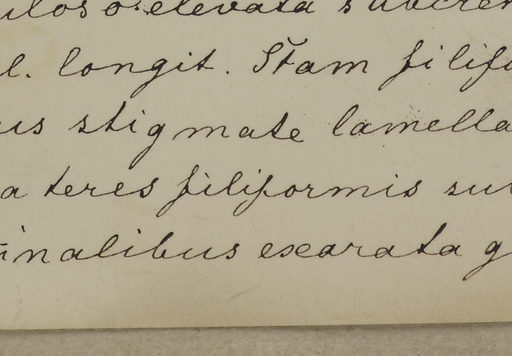 elevata subcre
l. longit. Stam filif
us stigmate lamella
a teres filiformis su
inalibus exarata g